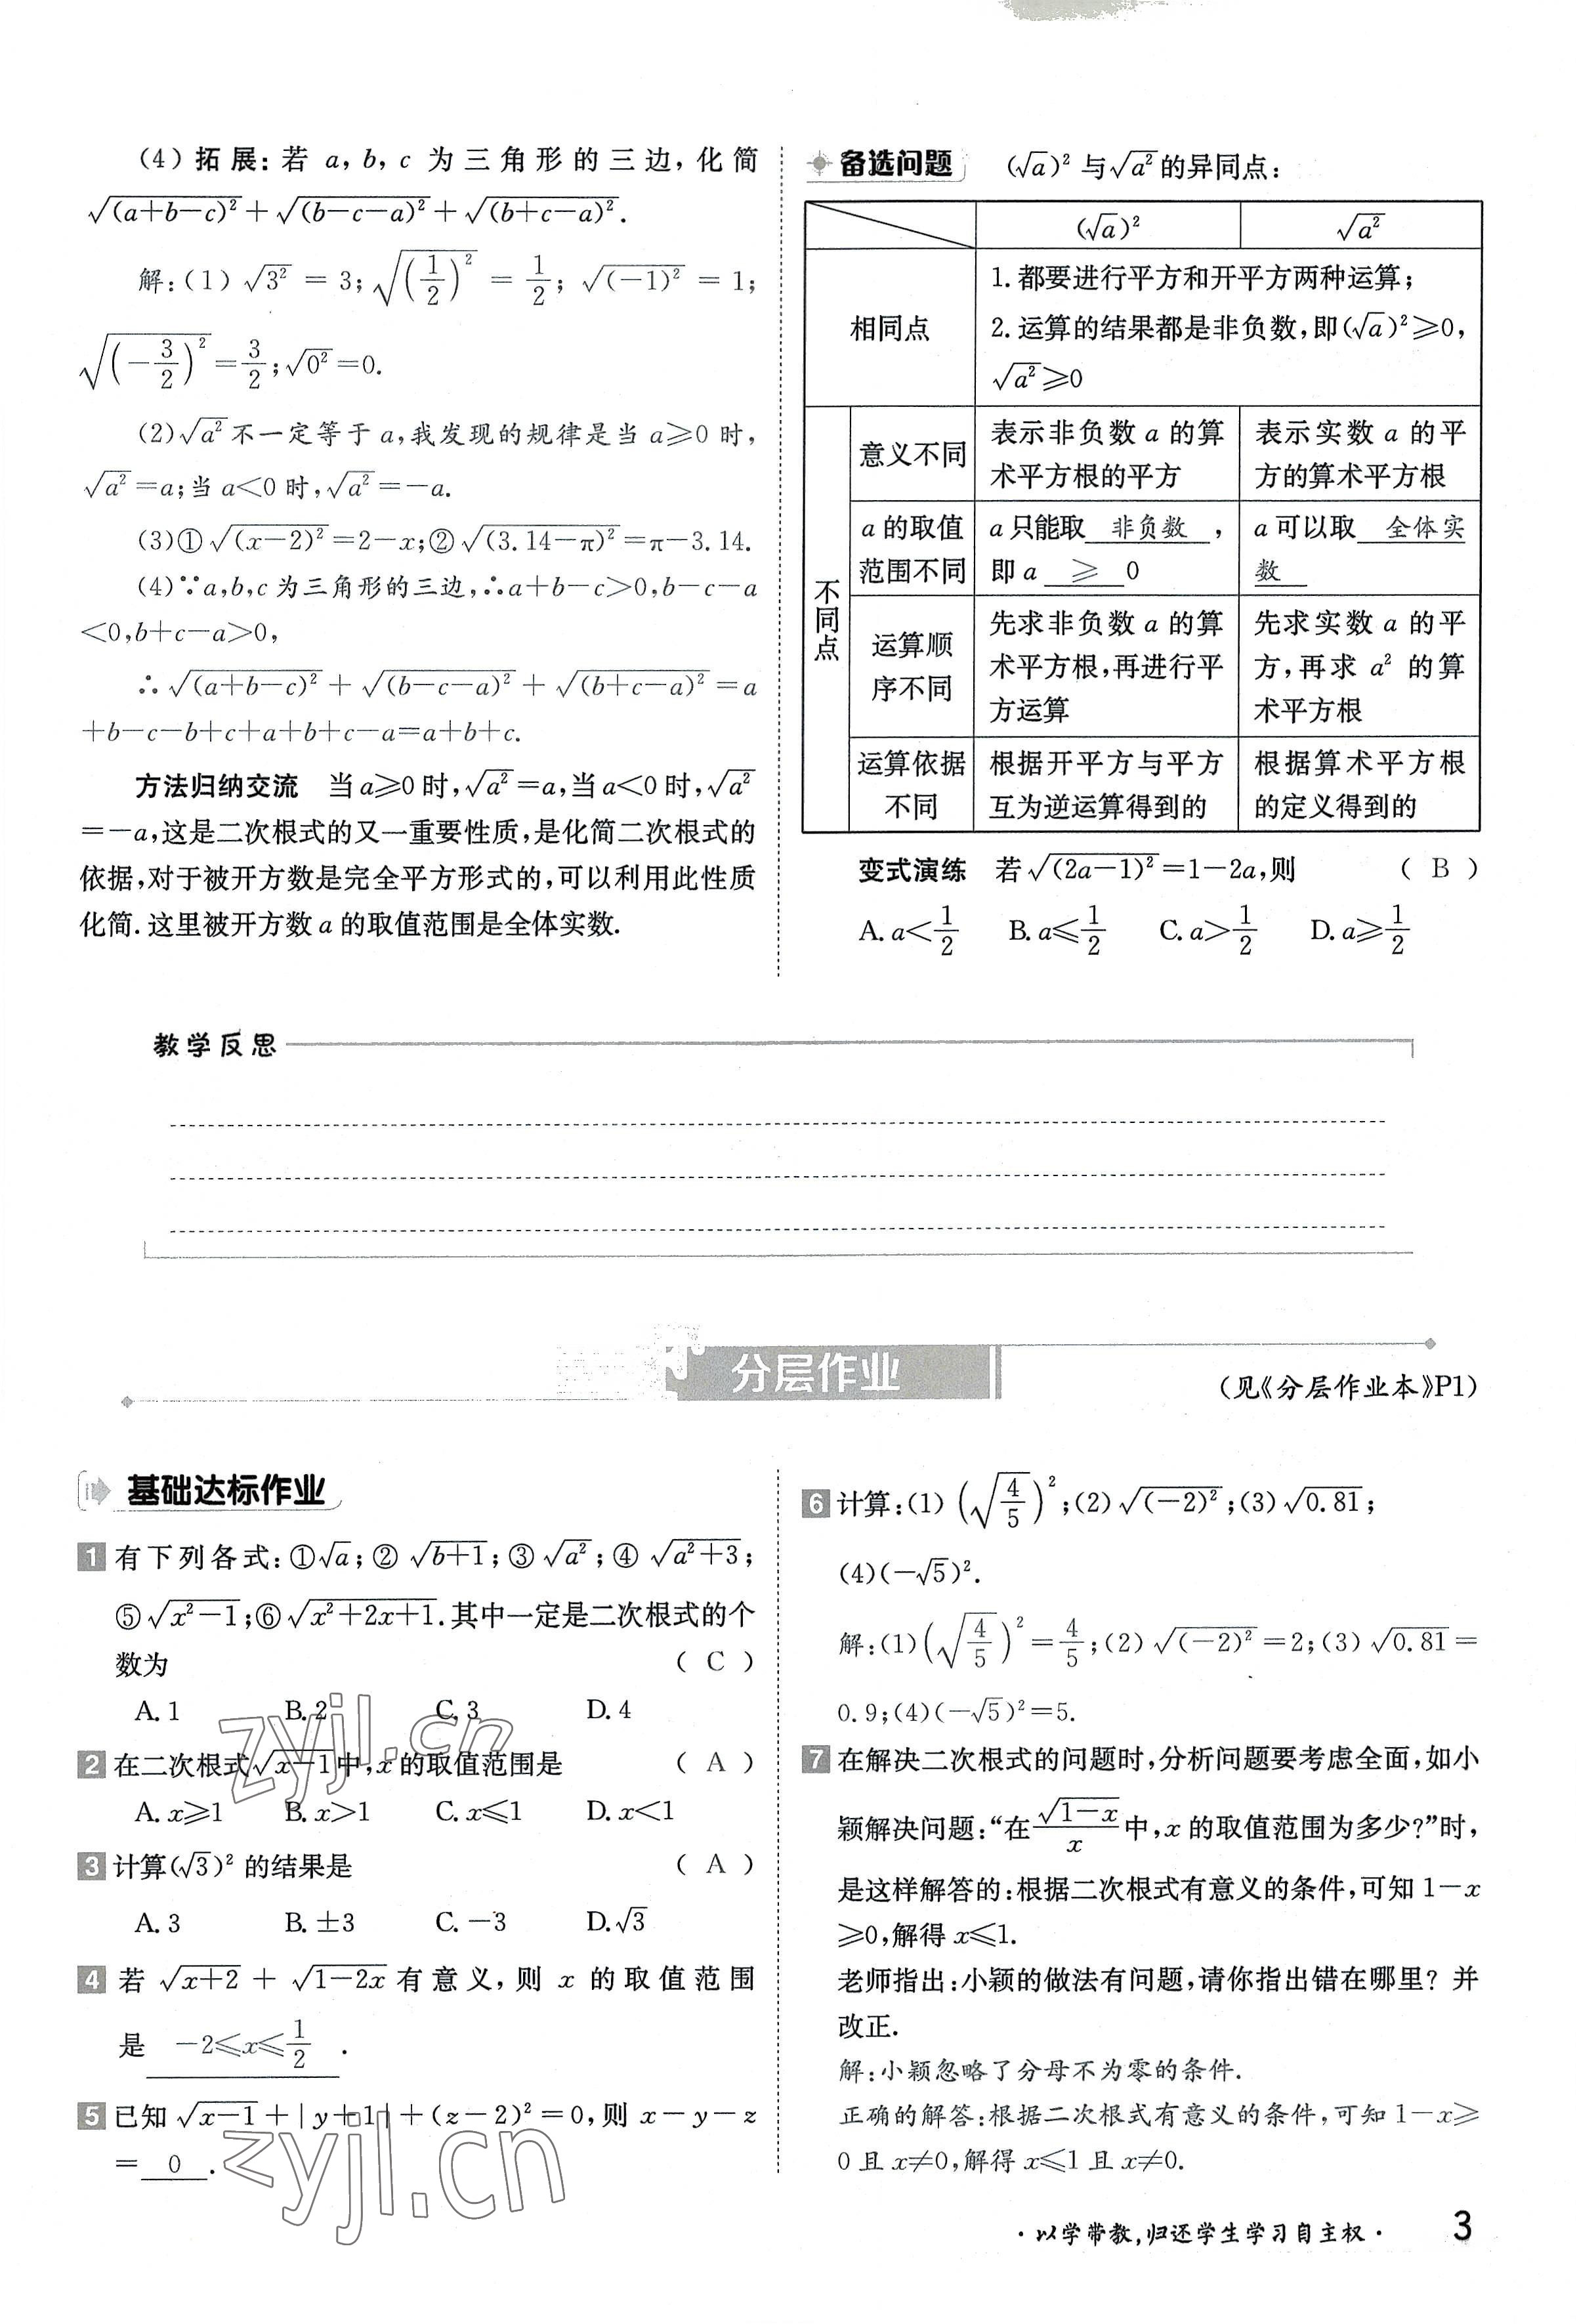 (4) 拓展:若 a, b, c 为三角形的三边,化简
√(a+b−c)² + √(b−c−a)² + √(b+c−a)².
解:(1) √3² = 3; √(1/2)² = 1/2; √(−1)² = 1;
√(−3/2)² = 3/2; √0² =0.
(2)√a² 不一定等于 a,我发现的规律是当 a⩾0 时,
√a² =a;当 a<0 时,√a² =−a.
(3)①√(x−2)² =2−x;②√(3.14−π)² =π−3.14.
(4)∵a,b,c 为三角形的三边,∴a+b−c>0,b−c−a
<0,b+c−a>0,
∴√(a+b−c)² + √(b−c−a)² + √(b+c−a)² =a
+b−c−b+c+a+b+c−a=a+b+c.
方法归纳交流 当 a⩾0 时,√a² =a,当 a<0 时,√a²
=−a,这是二次根式的又一重要性质,是化简二次根式的
依据,对于被开方数是完全平方形式的,可以利用此性质
化简.这里被开方数 a 的取值范围是全体实数.
备选问题 (√a)² 与√a² 的异同点:
(√a)² √a²
相同点
1.都要进行平方和开平方两种运算;
2.运算的结果都是非负数,即(√a)²⩾0,
√a²⩾0
不同点
意义不同
表示非负数 a 的算
术平方根的平方
表示实数 a 的平
方的算术平方根
a 的取值
范围不同
a 只能取 非负数 ,
即 a ⩾ 0
a 可以取 全体实
数
运算顺
序不同
先求非负数 a 的算
术平方根,再进行平
方运算
先求实数 a 的平
方,再求 a² 的算
术平方根
运算依据
不同
根据开平方与平方
互为逆运算得到的
根据算术平方根
的定义得到的
变式演练 若√(2a−1)² =1−2a,则 ( B )
A. a<1/2 B. a⩽1/2 C. a>1/2 D. a⩾1/2
教学反思
分层作业
(见《分层作业本》P1)
基础达标作业
1 有下列各式:①√a;② √(b+1);③ √a²;④ √(a²+3);
⑤√(x²−1);⑥√(x²+2x+1).其中一定是二次根式的个
数为 ( C )
A. 1 B. 2 C. 3 D. 4
2 在二次根式√(x−1)中,x 的取值范围是 ( A )
A. x⩾1 B. x>1 C. x⩽1 D. x<1
3 计算(√3)² 的结果是 ( A )
A. 3 B. ±3 C. −3 D. √3
4 若 √(x+2) + √(1−2x) 有意义,则 x 的取值范围
是 −2⩽x⩽1/2 .
5 已知 √(x−1)+|y+1|+(z−2)²=0,则 x−y−z
= 0 .
6 计算:(1) (√(4/5))²;(2)√(−2)²;(3)√0.81;
(4)(−√5)².
解:(1)(√(4/5))²=4/5;(2)√(−2)²=2;(3)√0.81=
0.9;(4)(−√5)²=5.
7 在解决二次根式的问题时,分析问题要考虑全面,如小
颖解决问题:“在√(1−x)/x中,x 的取值范围为多少?”时,
是这样解答的:根据二次根式有意义的条件,可知 1−x
⩾0,解得 x⩽1.
老师指出:小颖的做法有问题,请你指出错在哪里? 并
改正.
解:小颖忽略了分母不为零的条件.
正确的解答:根据二次根式有意义的条件,可知 1−x⩾
0 且 x≠0,解得 x⩽1 且 x≠0.
·以学带教,归还学生学习自主权· 3
zyjl.cn
zyjl.cn